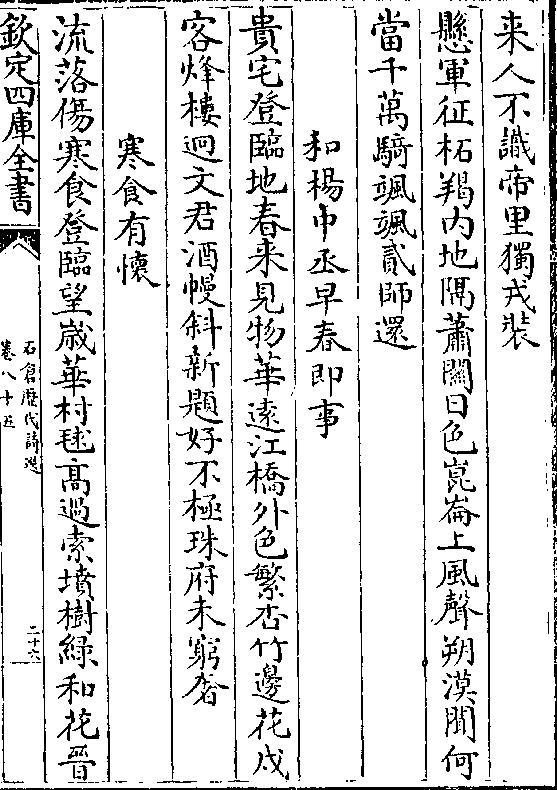 来人不識帝里獨戎裝
懸軍征柘羯内地隔蕭關日色崑崙上風聲朔漠間何
當千萬騎颯颯貳師還
和楊中丞早春即事
貴宅登臨地春来見物華逺江橋外色繁杏竹邊花戍
客烽樓迥文君酒幔斜新題好不極珠府未窮奢
寒食有懷
流落傷寒食登臨望嵗華村毬髙過索墳樹緑和花晉
欽定四庫全書
石倉歴代詩選
卷八十五
二十六